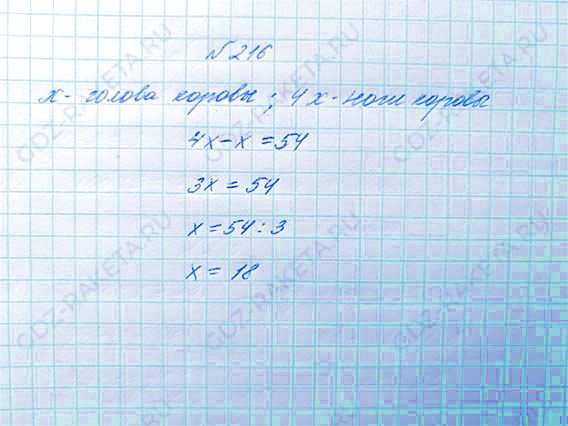 N 216
x - голова коровы ; 4x - ноги коровы
4x - x = 54
3x = 54
x = 54 : 3
x = 18
GDZ-RAKETA.RU
GDZ-RAKETA.RU
GDZ-RAKETA.RU
GDZ-RAKETA.RU
GDZ-RAKETA.RU
GDZ-RAKETA.RU